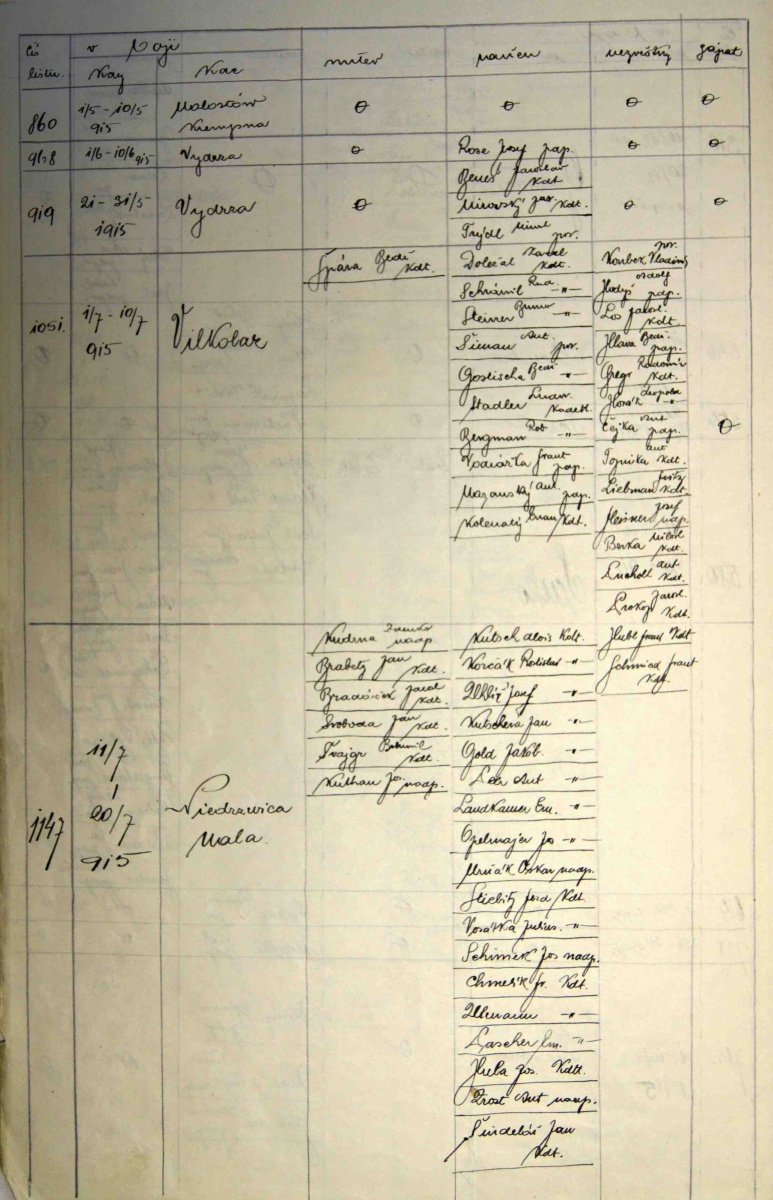 čís listiu. v boji mrtev raněn nezvěstný zajat
Kdy Kde
860 1/5 - 10/5 915 Malastów Krempna
948 1/6 - 10/6 915 Vydrza Rose Josef pap.
919 21 - 31/5 1915 Vydrza
Beneš Jaroslav Kdt
Mirovský Jar. Kdt.
Trýdl por.
1051. 1/7 - 10/7 915 Vilkolaz
Špána Bedř Kdt.
Doležal Karel Kdt.
Schrámil Rud. -"-
Steiner Bruno -"-
Šiman Ant. por.
Goslischa Bedř -"-
Stadler Ludw. Kadett.
Bergman Rob -"-
Vodiařka Frant pap.
Mazanský Ant. pap.
Kolenatý Kdt.
Koubek Vladimír por.
Hudyš pap.
Los Jarosl. Kdt.
Hlava Bedř. pap.
Gregr Radomír Kdt.
Horák Leopold -"-
Čejka Ant pap.
Topinka Ant Kdt.
Liebman Fritz Kdt.
Josef nadp.
Berka Milosl Kdt.
Lucholt Ant Kdt.
Prokop Jarosl. Kdt.
1147 11/7 - 20/7 915 Niedrzwica Mala.
Kudrna nadp.
Brabetz Jan Kdt.
Kdt.
Svoboda Jan Kdt.
Švajgr Bohumil Kdt.
Kuthan Jos. nadp.
Kutsch Alois Kdt.
Korčák Rostislav -"-
Josef -"-
Kutschera Jan -"-
Gold Jakob. -"-
Ant -"-
Landkamer Em. -"-
Opelmajer Jos -"-
Mrňák Oskar nadp.
Stiebitz Ferd Kdt.
Vosátka Julius. -"-
Schimek Jos nadp.
Chmelík Fr. Kdt.
Ullmann -"-
Lascher Em. -"-
Hula Jos. Kdt.
Zrost Ant nadp.
Šindelář Jan Kdt.
Hübl Franz Kdt
Schmied Frant Kdt.